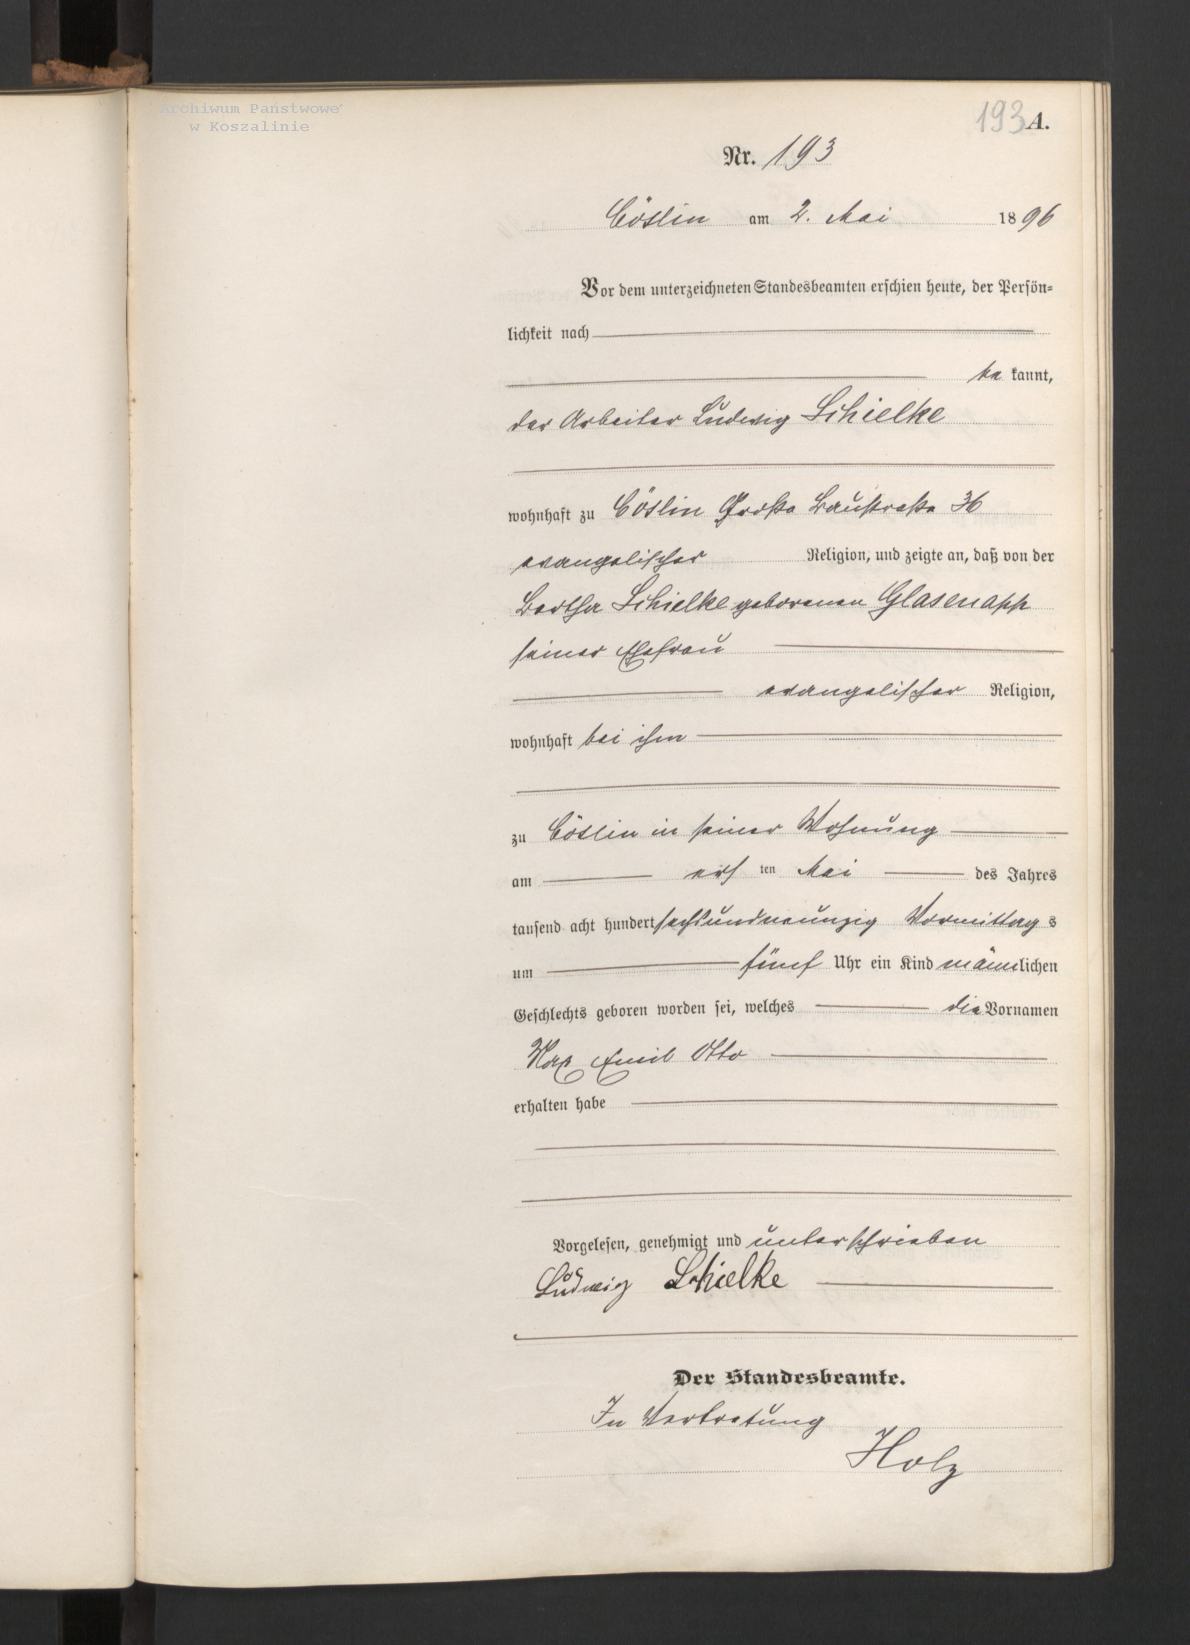 Archiwum Państwowe
w Koszalinie
193 A.
Nr. 193
Cöslin am 2. Mai 1896
Vor dem unterzeichneten Standesbeamten erschien heute, der Persön=
lichkeit nach
be kannt,
der Arbeiter Ludwig Schielke
wohnhaft zu Cöslin Große Baustraße 36
evangelischer Religion, und zeigte an, daß von der
Bertha Schielke geborenen Glasenapp
seiner Ehefrau
evangelischer Religion,
wohnhaft bei ihm
zu Cöslin in seiner Wohnung
am ers ten Mai des Jahres
tausend acht hundert sechsundneunzig Vormittag s
um fünf Uhr ein Kind männlichen
Geschlechts geboren worden sei, welches die Vornamen
Max Emil Otto
erhalten habe
Vorgelesen, genehmigt und unterschrieben
Ludwig Schielke
Der Standesbeamte.
In Vertretung
Holz